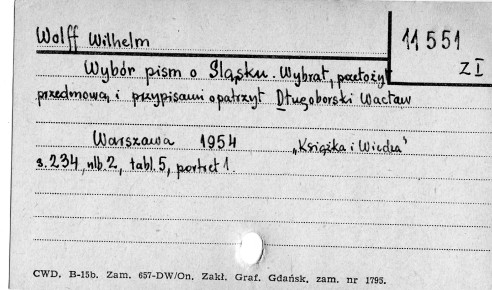 Wolff Wilhelm
11 551
Z I
Wybór pism o Śląsku. Wybrał, przełożył,
przedmową i przypisami opatrzył Długoborski Wacław
Warszawa 1954 „Książka i Wiedza"
s. 234, nlb. 2, tabl. 5, portret 1.
CWD, B-15b. Zam. 657-DW/On. Zakł. Graf. Gdańsk, zam. nr 1795.